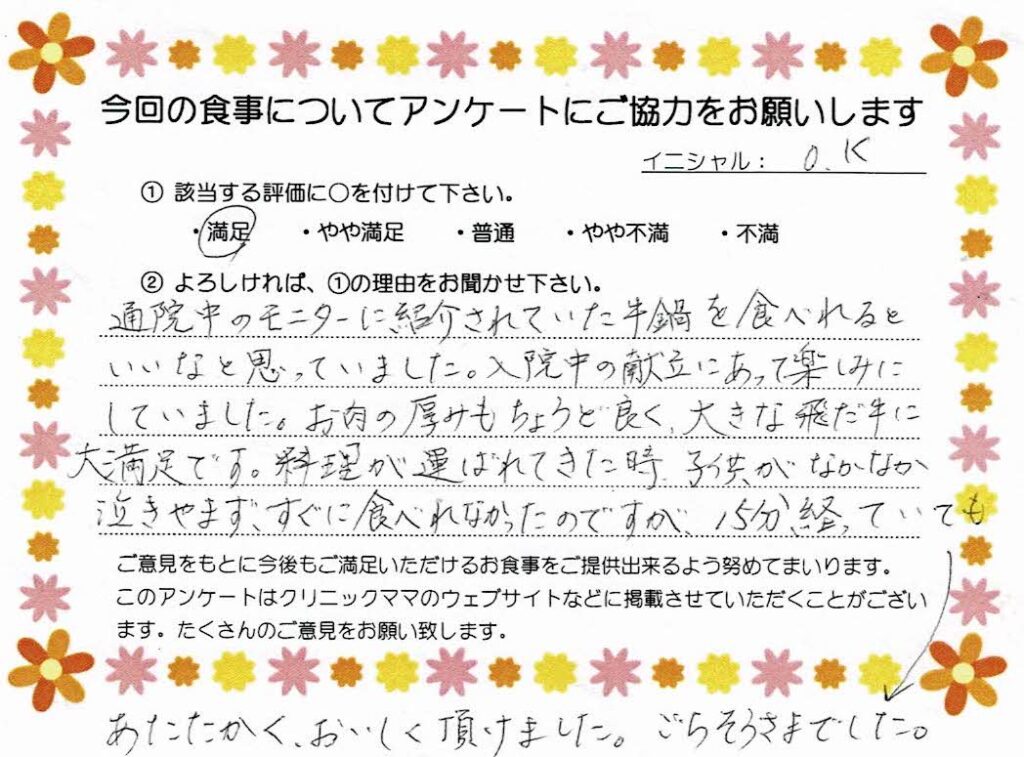 今回の食事についてアンケートにご協力をお願いします
イニシャル： O.K
① 該当する評価に○を付けて下さい。
・満足 ・やや満足 ・普通 ・やや不満 ・不満
② よろしければ、①の理由をお聞かせ下さい。
通院中のモニターに紹介されていた牛鍋を食べれると
いいなと思っていました。入院中の献立にあって楽しみに
していました。お肉の厚みもちょうど良く、大きな飛だ牛に
大満足です。料理が運ばれてきた時、子供がなかなか
泣きやまず、すぐに食べれなかったのですが、15分経っていても
ご意見をもとに今後もご満足いただけるお食事をご提供出来るよう努めてまいります。
このアンケートはクリニックママのウェブサイトなどに掲載させていただくことがござい
ます。たくさんのご意見をお願い致します。
あたたかく、おいしく頂けました。ごちそうさまでした。